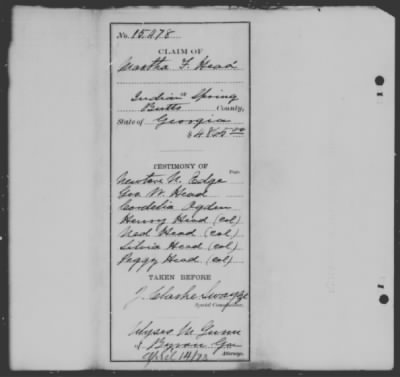 No. 15,278
CLAIM OF
Martha F. Head
Indian Spring
Butts County,
State of Georgia
$
TESTIMONY OF
Page
Newton N. Edge
Geo W. Head
Cordelia Ogden
Henry Head (col)
Ned Head (col)
Silvia Head (col)
Peggy Head (col)
TAKEN BEFORE
J. Clarke Swayze
Special Commissioner.
Ulyses M. Gunn
of Byron Ga
Attorney.
April 14/73